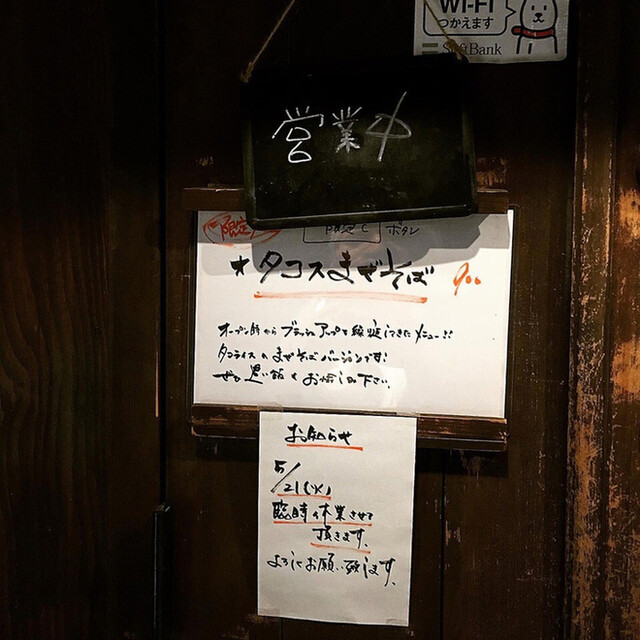 WI-FI
つかえます
SoftBank
営業中
限定
限定C ボタン
★タコスまぜそば 900
オープン時からブラッシュアップを繰返してきたメニュー!!
タコライスのまぜそばバージョンです!
ぜひ追い飯もお試し下さい。
お知らせ
5/21(火)
臨時休業させて
頂きます。
よろしくお願い致します。